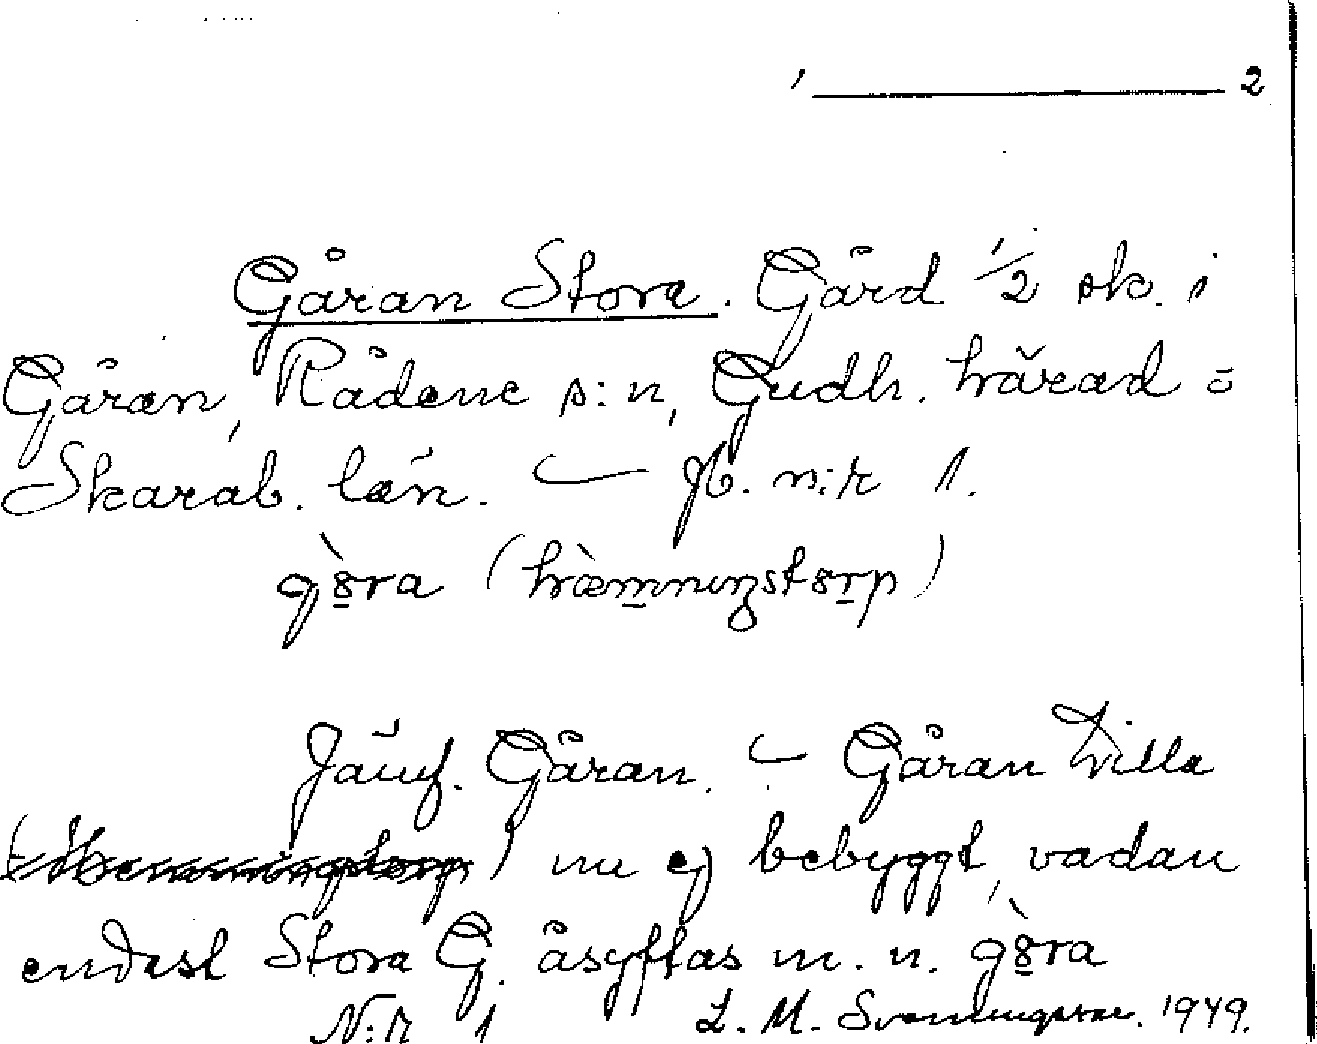 1 2
Gåran Stora. Gård 1/2 sk. i
Gåran, Rådene s:n, Gudh. härad o
Skarab. län. — Jb. n:r 1.
gòra (hæmningstorp)
Jämf. Gåran. — Gåran Lilla
nu ej bebyggt, vadan
endast Stora G. åsyftas m. n. gòra
N:r 1 L. M. Svenungsson. 1949.